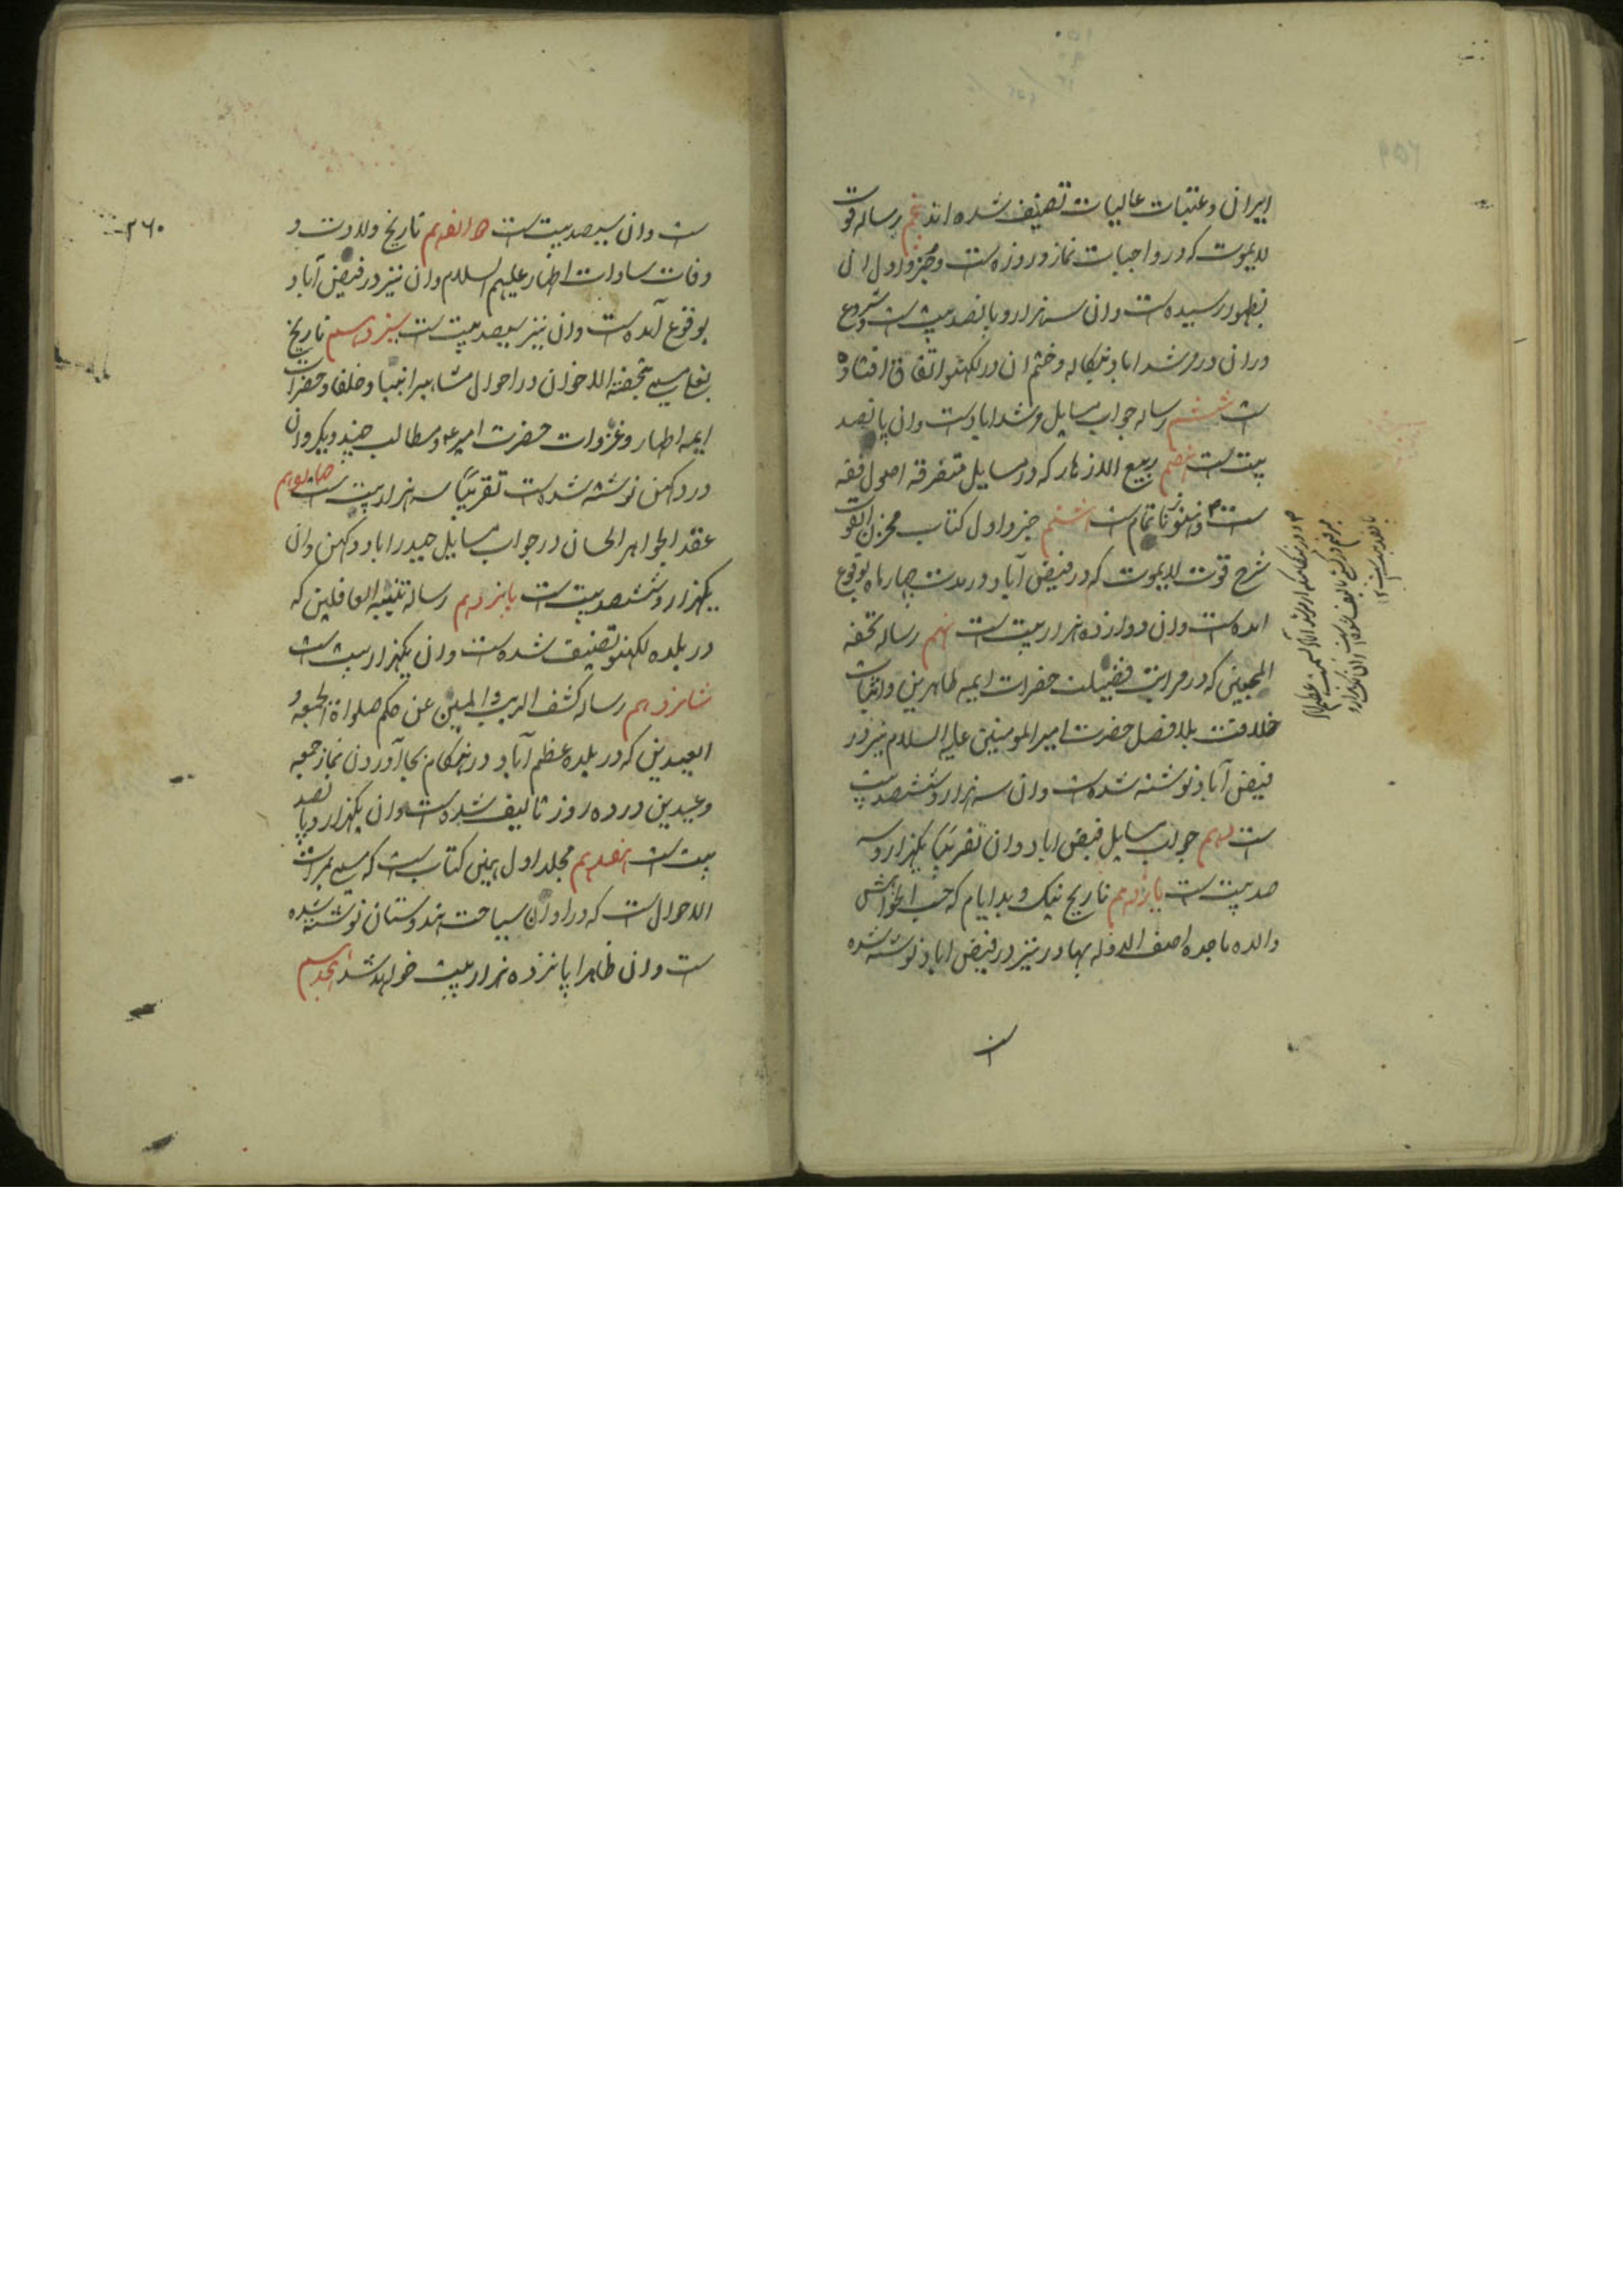 ایران و عتبات عالیات تصنیف شده اند پنجم رساله قوت
لایموت که در واجبات نماز و روزه ست و جزو اول ان
بظهور رسیده ست و ان سه هزار و پانصد بیت ست و شروع
دران در مرشداباد بنکاله و ختم ان در لکهنو اتفاق افتاده
ست ششم رساله جواب مسایل مرشداباد ست و ان پانصد
بیت ست هفتم ربیع الازهار که در مسایل متفرقه اصول فقه
ست و هنوز ناتمام ست هشتم جزو اول کتاب مخزن القوت
شرح قوت لایموت که در فیض آباد در مدت چهار ماه بوقوع
امده ست و ان دوازده هزار بیت ست نهم رساله تحفه
المحبین که در مراتب فضیلت حضرات ایمه طاهرین و اثبات
خلافت بلافصل حضرت امیر المومنین علیه السلام نیز در
فیض آباد نوشته شده ست و ان سه هزار و ششصد بیت
ست دهم جواب مسایل فیض اباد و ان تقریبا یکهزار و سه
صد بیت ست یازدهم تاریخ نیک و بد ایام که حسب الخواهش
والده ماجده اصف الدوله بهادر نیز در فیض اباد نوشته شده
ست
ست و ان سیصد بیت ست دوازدهم تاریخ ولادت و
وفات سادات اطهار علیهم السلام و ان نیز در فیض آباد
بوقوع آمده ست و ان نیز سیصد بیت ست سیزدهم تاریخ
مسمی بتحفة الاخوان در احوال مشاهیر انبیا و خلفا و حضرات
ایمه اطهار و غزوات حضرت امیر ع و مطالب چند دیکر و ان
در دکهن نوشته شده ست تقریبا سه هزار بیت ست چهاردهم
عقد الجواهر الحسان در جواب مسایل حیدراباد دکهن و ان
یکهزار و ششصد بیت ست پانزدهم رساله تنبیه الغافلین که
در بلده لکهنو تصنیف شده ست و ان یکهزار بیت ست
شانزدهم رساله کشف الریب و المین عن حکم صلواة الجمعه و
العیدین که در بلده عظیم آباد در هنکام بجا آوردن نماز جمعه
و عیدین در ده روز تالیف شده ست و ان یکهزار و پانصد
بیت ست هفدهم مجلد اول همین کتاب ست که مسمی بمرات
الاحوال ست که در اوان سیاحت هندوستان نوشته شده
ست و ان ظاهرا پانزده هزار بیت خواهد شد هجدهم
۲۶۰